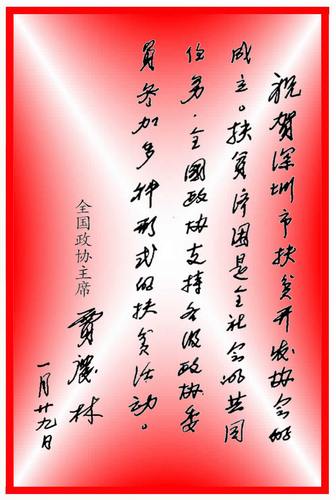 祝贺深圳市扶贫开发协会的
成立。扶贫济困是全社会的共同
任务.全國政协支持各级政协委
员参加多种形式的扶贫活动。
全国政协主席
贾慶林
一月廿九日